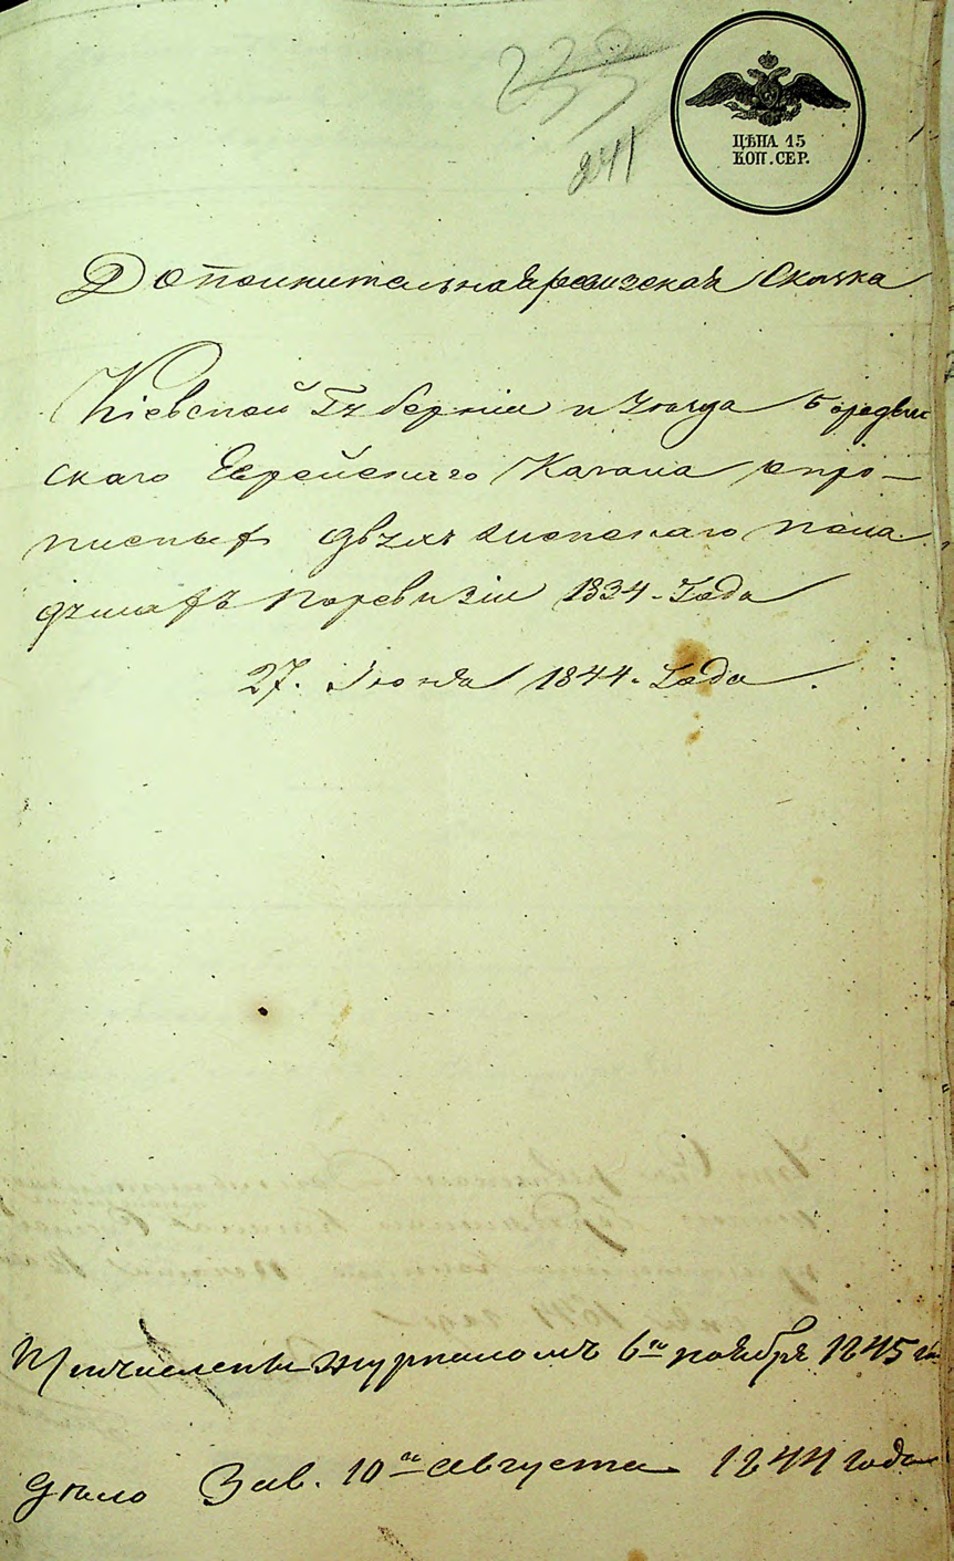 233
241
ЦѢНА 15
КОП. СЕР.
Дополнительная ревизская Скаска
Кіевской Губерніи и Уезда Бородян
скаго Еврейскаго Кагала опро
писных двухъ мужескаго пола
душахъ поревизіи 1834 Года
27. Іюня 1844. Года.
Причислены журналомъ 6го ноября 1845 го
дѣло Зав. 10го августа 1844 года